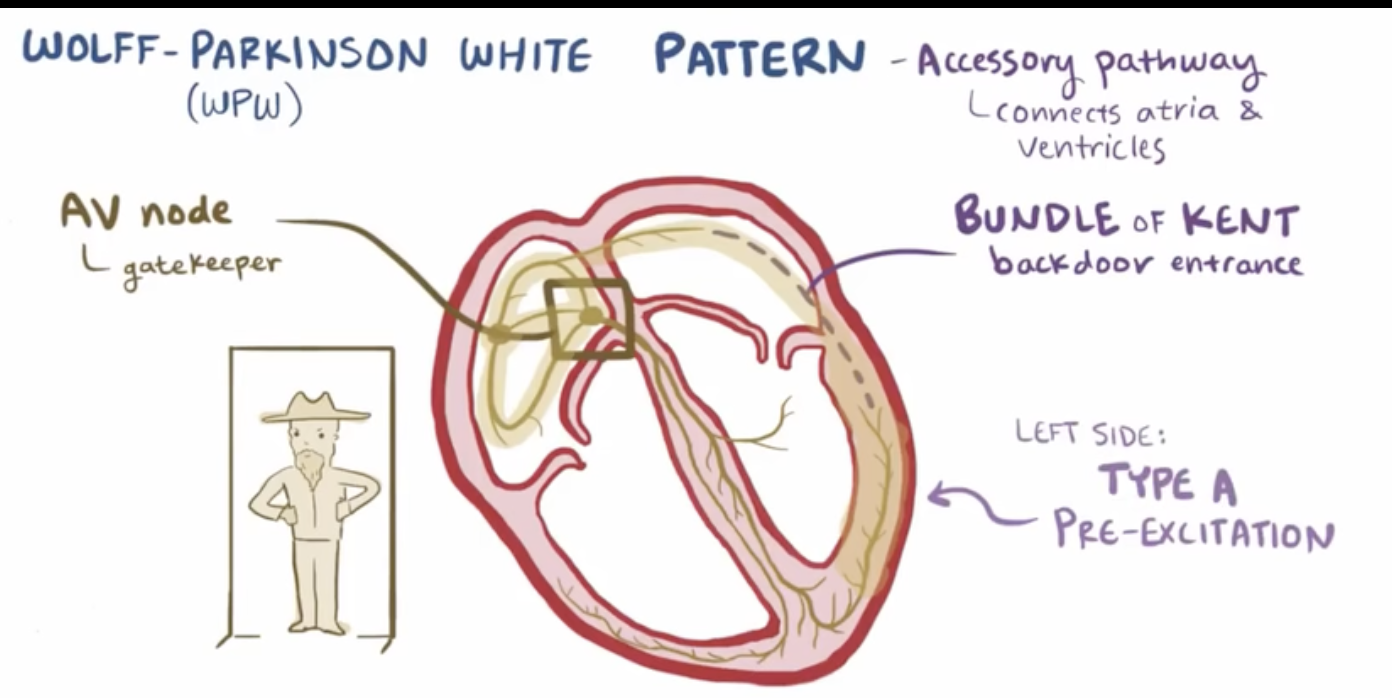 WOLFF-PARKINSON WHITE PATTERN - Accessory pathway
(WPW)
connects atria &
ventricles
AV node
gatekeeper
BUNDLE OF KENT
backdoor entrance
LEFT SIDE:
TYPE A
PRE-EXCITATION